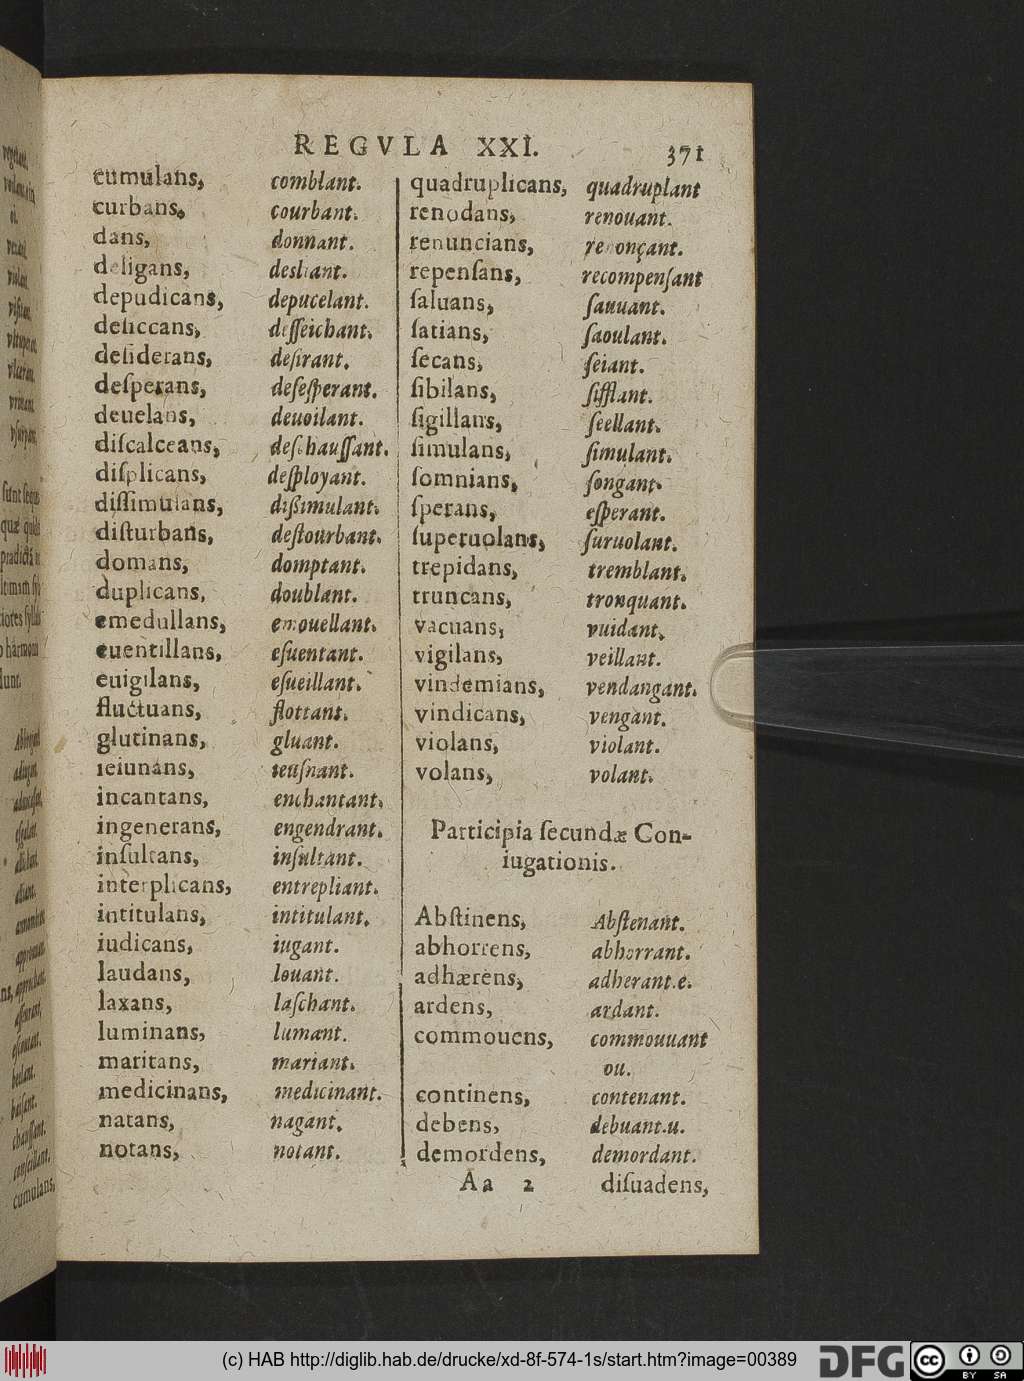 REGVLA XXI.
371
cumulans, comblant.
curbans, courbant.
dans, donnant.
deligans, desliant.
depudicans, depucelant.
deſiccans, deſſeichant.
deſiderans, deſirant.
deſperans, deſeſperant.
deuelans, deuoilant.
diſcalceans, deſchauſſant.
diſplicans, deſployant.
diſſimulans, dißimulant.
diſturbans, deſtourbant.
domans, domptant.
duplicans, doublant.
emedullans, emouellant.
euentillans, eſuentant.
euigilans, eſueillant.
fluctuans, flottant.
glutinans, gluant.
ieiunans, ieuſnant.
incantans, enchantant.
ingenerans, engendrant.
inſultans, inſultant.
interplicans, entrepliant.
intitulans, intitulant.
iudicans, iugant.
laudans, louant.
laxans, laſchant.
luminans, lumant.
maritans, mariant.
medicinans, medicinant.
natans, nagant.
notans, notant.
quadruplicans, quadruplant
renodans, renouant.
renuncians, renonçant.
repenſans, recompenſant
ſaluans, ſauuant.
ſatians, ſaoulant.
ſecans, ſeiant.
ſibilans, ſifflant.
ſigillans, ſeellant.
ſimulans, ſimulant.
ſomnians, ſongant.
ſperans, eſperant.
ſuperuolans, ſuruolant.
trepidans, tremblant.
truncans, tronquant.
vacuans, vuidant.
vigilans, veillant.
vindemians, vendangant.
vindicans, vengant.
violans, violant.
volans, volant.
Participia ſecundæ Con-
iugationis.
Abſtinens, Abſtenant.
abhorrens, abhorrant.
adhærens, adherant.e.
ardens, ardant.
commouens, commouuant
ou.
continens, contenant.
debens, debuant.u.
demordens, demordant.
Aa 2 diſuadens,
(c) HAB http://diglib.hab.de/drucke/xd-8f-574-1s/start.htm?image=00389
DFG
cc BY SA